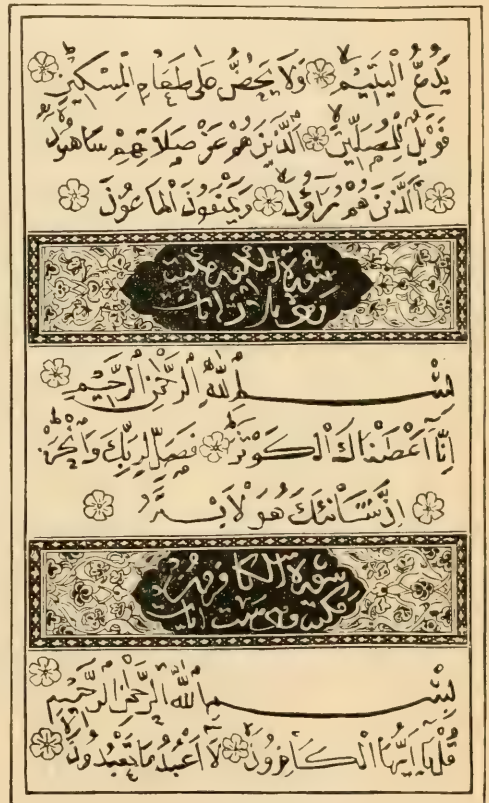 يَدُعُّ الْيَتِيمَ وَلَا يَحُضُّ عَلَى طَعَامِ الْمِسْكِينِ
فَوَيْلٌ لِلْمُصَلِّينَ الَّذِينَ هُمْ عَنْ صَلَاتِهِمْ سَاهُونَ
اَلَّذِينَ هُمْ يُرَاؤُنَ وَيَمْنَعُونَ الْمَاعُونَ
سورة
بِسْمِ اللّٰهِ الرَّحْمٰنِ الرَّحِيمِ
اِنَّا اَعْطَيْنَاكَ الْكَوْثَرَ فَصَلِّ لِرَبِّكَ وَانْحَرْ
اِنَّ شَانِئَكَ هُوَ الْاَبْتَرُ
سورة الكافرون
مكية وهي ست ايات
بِسْمِ اللّٰهِ الرَّحْمٰنِ الرَّحِيمِ
قُلْ يَا اَيُّهَا الْكَافِرُونَ لَا اَعْبُدُ مَا تَعْبُدُونَ